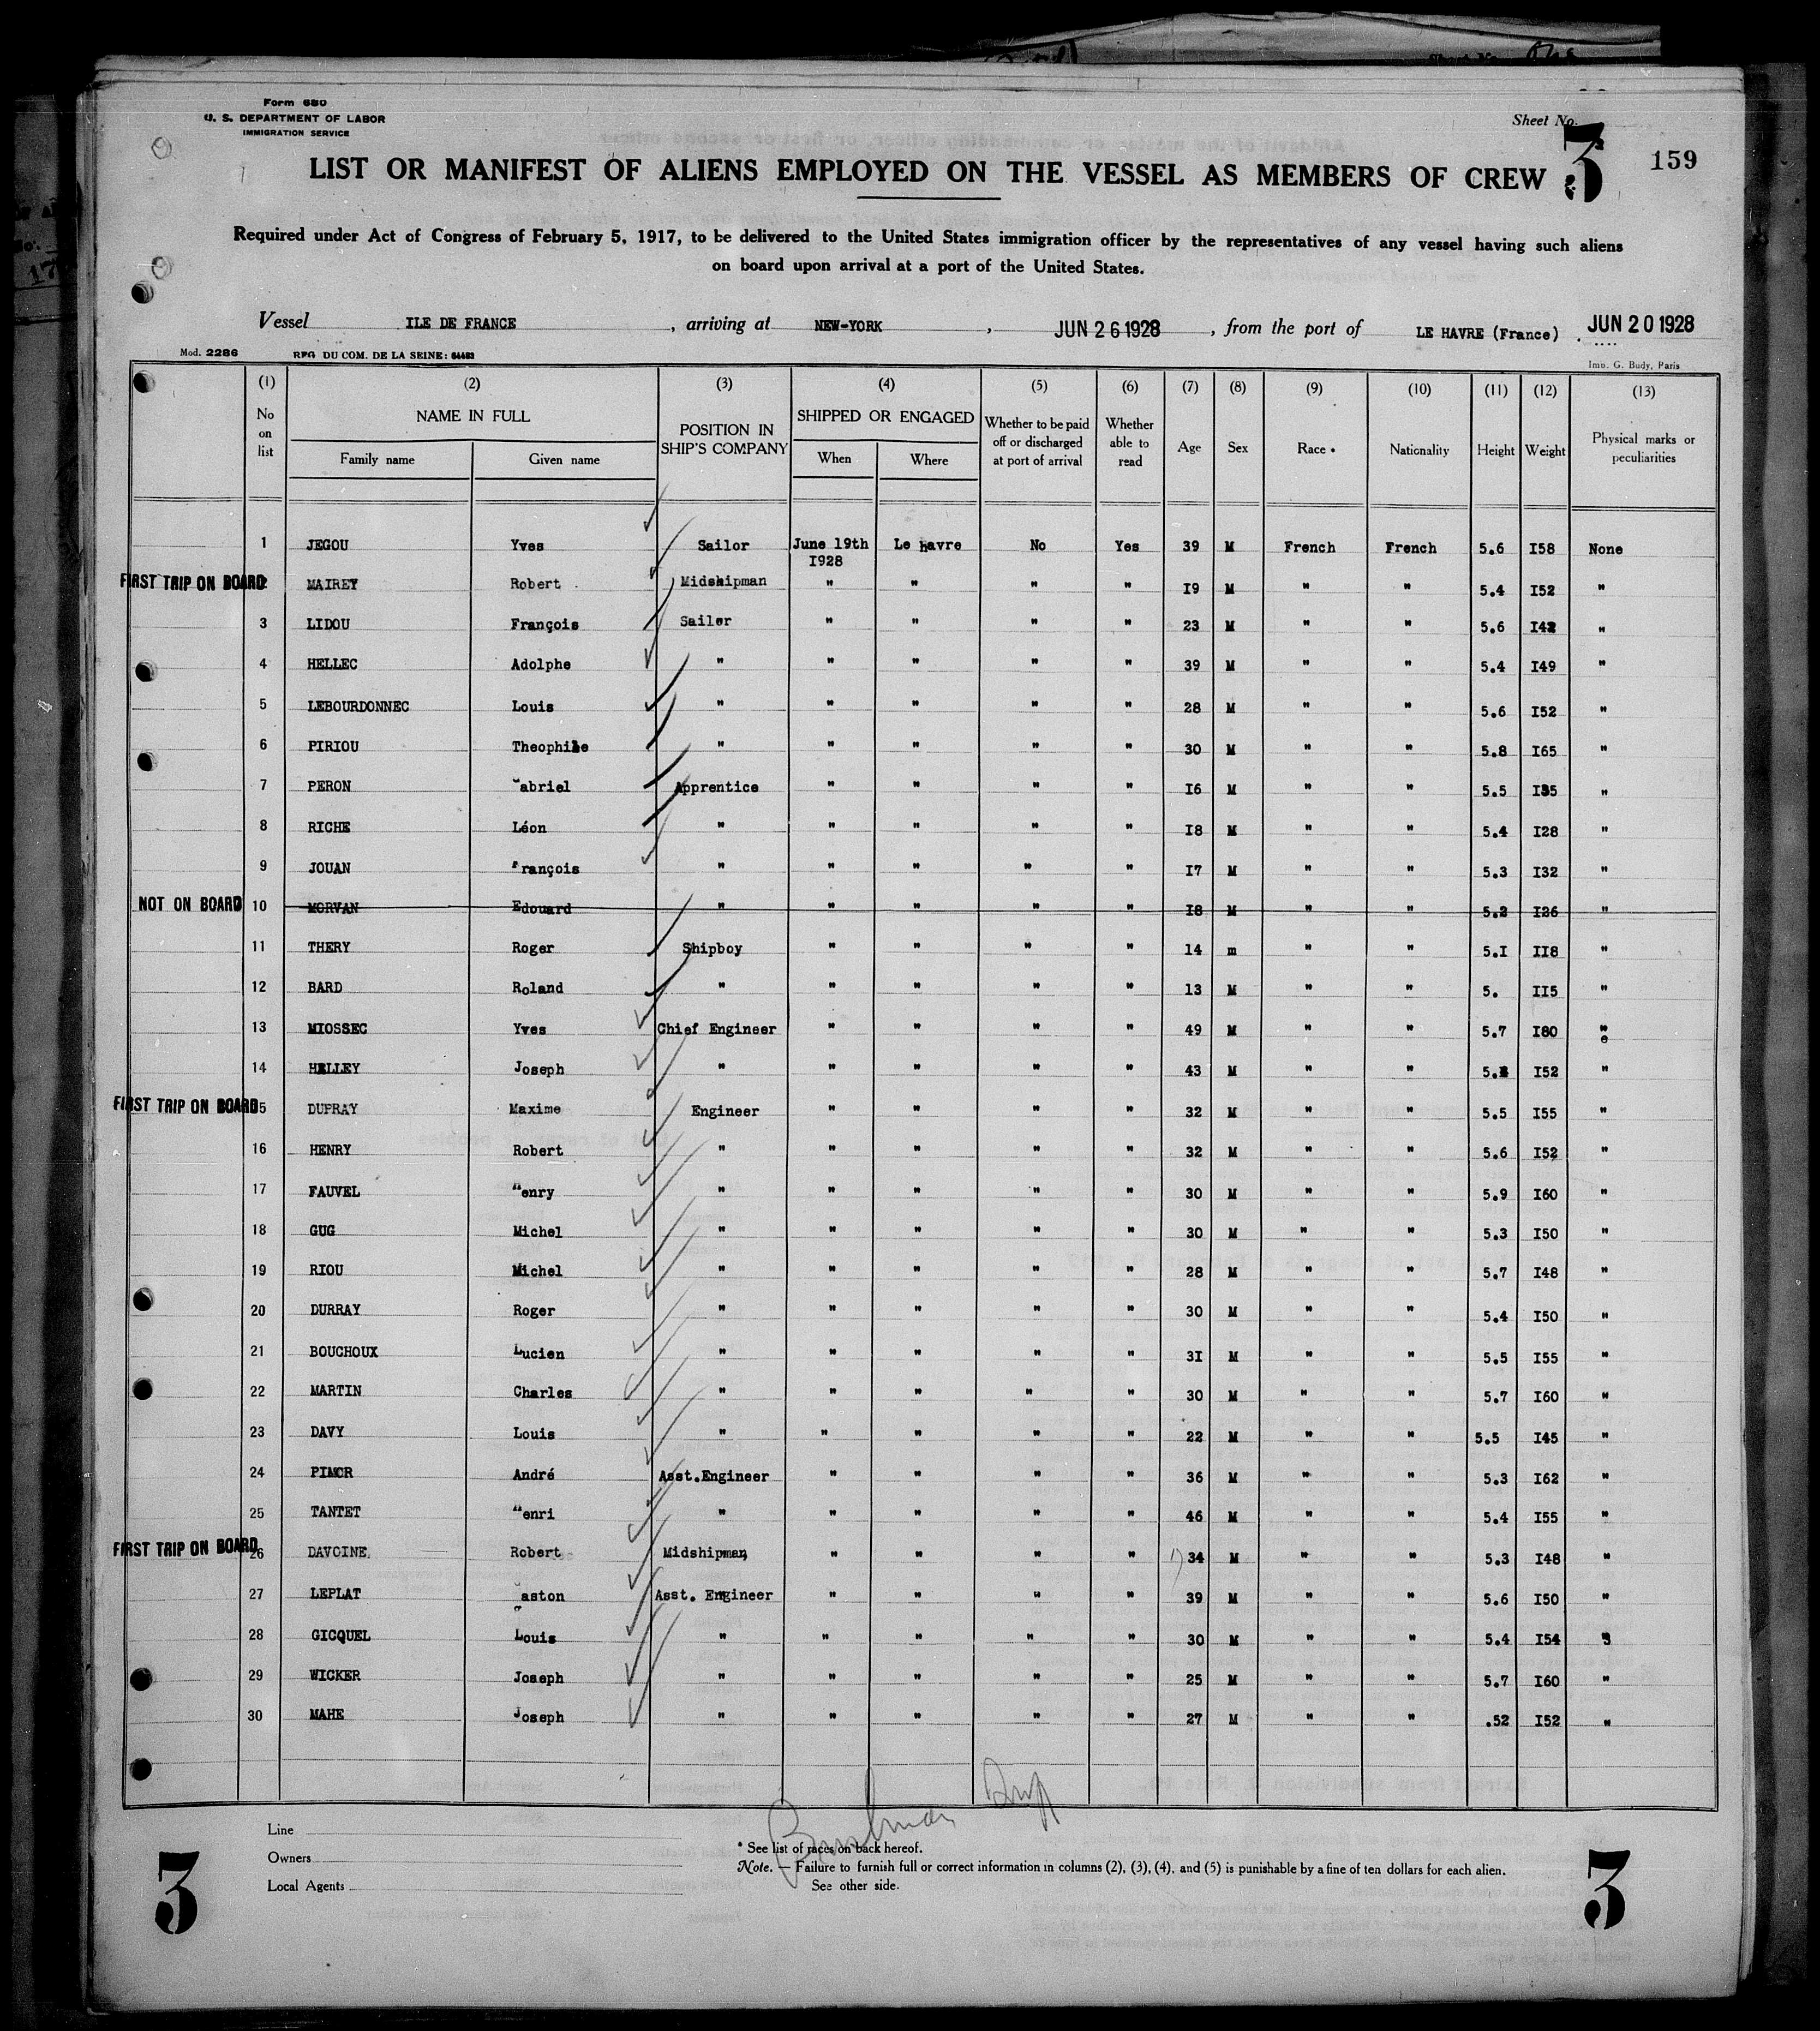 Form 680
U. S. DEPARTMENT OF LABOR
IMMIGRATION SERVICE
Sheet No.
3
159
LIST OR MANIFEST OF ALIENS EMPLOYED ON THE VESSEL AS MEMBERS OF CREW
Required under Act of Congress of February 5, 1917, to be delivered to the United States immigration officer by the representatives of any vessel having such aliens
on board upon arrival at a port of the United States.
Vessel ILE DE FRANCE, arriving at NEW-YORK, JUN 26 1928, from the port of LE HAVRE (France). JUN 20 1928
Mod. 2286 REG DU COM. DE LA SEINE: 64483 Imp. G. Budy, Paris
(1) (2) (3) (4) (5) (6) (7) (8) (9) (10) (11) (12) (13)
No on list NAME IN FULL POSITION IN SHIP'S COMPANY SHIPPED OR ENGAGED Whether to be paid off or discharged at port of arrival Whether able to read Age Sex Race * Nationality Height Weight Physical marks or peculiarities
Family name Given name When Where
1 JEGOU Yves Sailor June 19th 1928 Le havre No Yes 39 M French French 5.6 I58 None
FIRST TRIP ON BOARD 2 MAIREY Robert Midshipman " " " " I9 M " " 5.4 I52 "
3 LIDOU François Sailor " " " " 23 M " " 5.6 I42 "
4 HELLEC Adolphe " " " " " 39 M " " 5.4 I49 "
5 LEBOURDONNEC Louis " " " " " 28 M " " 5.6 I52 "
6 PIRIOU Theophile " " " " " 30 M " " 5.8 I65 "
7 PERON Gabriel Apprentice " " " " I6 M " " 5.5 I35 "
8 RICHE Léon " " " " " I8 M " " 5.4 I28 "
9 JOUAN François " " " " " I7 M " " 5.3 I32 "
NOT ON BOARD 10 MORVAN Edouard " " " " " I8 M " " 5.2 I26 "
11 THERY Roger Shipboy " " " " 14 m " " 5.I II8 "
12 BARD Roland " " " " " 13 M " " 5. II5 "
13 MIOSSEC Yves Chief Engineer " " " " 49 M " " 5.7 I80 "
14 HELLEY Joseph " " " " " 43 M " " 5. I52 "
FIRST TRIP ON BOARD 15 DUPRAY Maxime Engineer " " " " 32 M " " 5.5 I55 "
16 HENRY Robert " " " " " 32 M " " 5.6 I52 "
17 FAUVEL Henry " " " " " 30 M " " 5.9 I60 "
18 GUG Michel " " " " " 30 M " " 5.3 I50 "
19 RIOU Michel " " " " " 28 M " " 5.7 I48 "
20 DURRAY Roger " " " " " 30 M " " 5.4 I50 "
21 BOUCHOUX Lucien " " " " " 3I M " " 5.5 I55 "
22 MARTIN Charles " " " " " 30 M " " 5.7 I60 "
23 DAVY Louis " " " " " 22 M " " 5.5 I45 "
24 PIMOR André Asst.Engineer " " " " 36 M " " 5.3 I62 "
25 TANTET Henri " " " " " 46 M " " 5.4 I55 "
FIRST TRIP ON BOARD 26 DAVOINE Robert Midshipman " " " " 34 M " " 5.3 I48 "
27 LEPLAT Gaston Asst. Engineer " " " " 39 M " " 5.6 I50 "
28 GICQUEL Louis " " " " " 30 M " " 5.4 I54 "
29 WICKER Joseph " " " " " 25 M " " 5.7 I60 "
30 MAHE Joseph " " " " " 27 M " " .52 I52 "
Line
Owners
Local Agents
* See list of races on back hereof.
Note. — Failure to furnish full or correct information in columns (2), (3), (4), and (5) is punishable by a fine of ten dollars for each alien.
See other side.
3
3